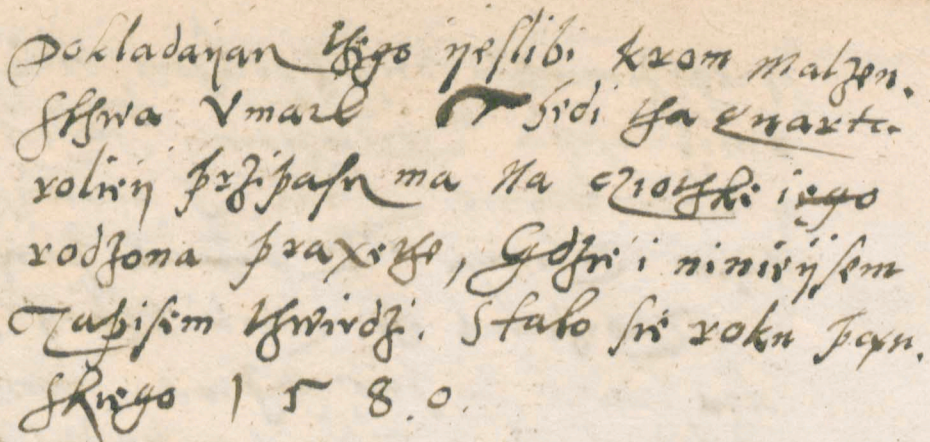 Dokladaijan thego ijeslibi krom malzen.
sthwa Vmarl Thedi tha quarta
rolieij przipasn ma na cziothke iego
rodzona praxethe, Gdzie i ninieijsem
Zapisem thwirdzi. Stalo sie roku pan.
skiego 1580.